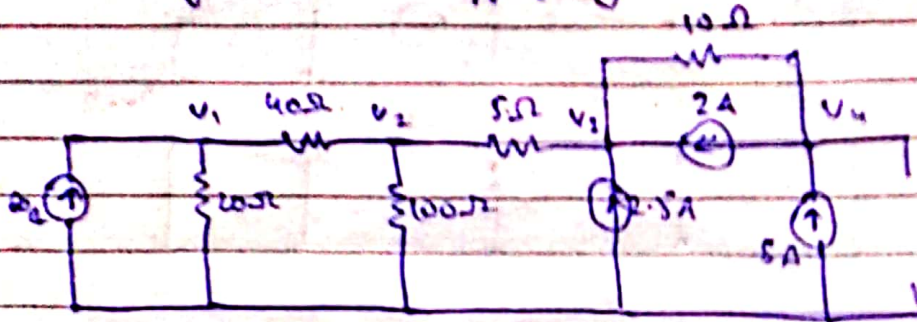 10Ω
V₁ 40Ω V₂ 5Ω V₃ 2A V₄
20Ω 100Ω 2.5A
5A